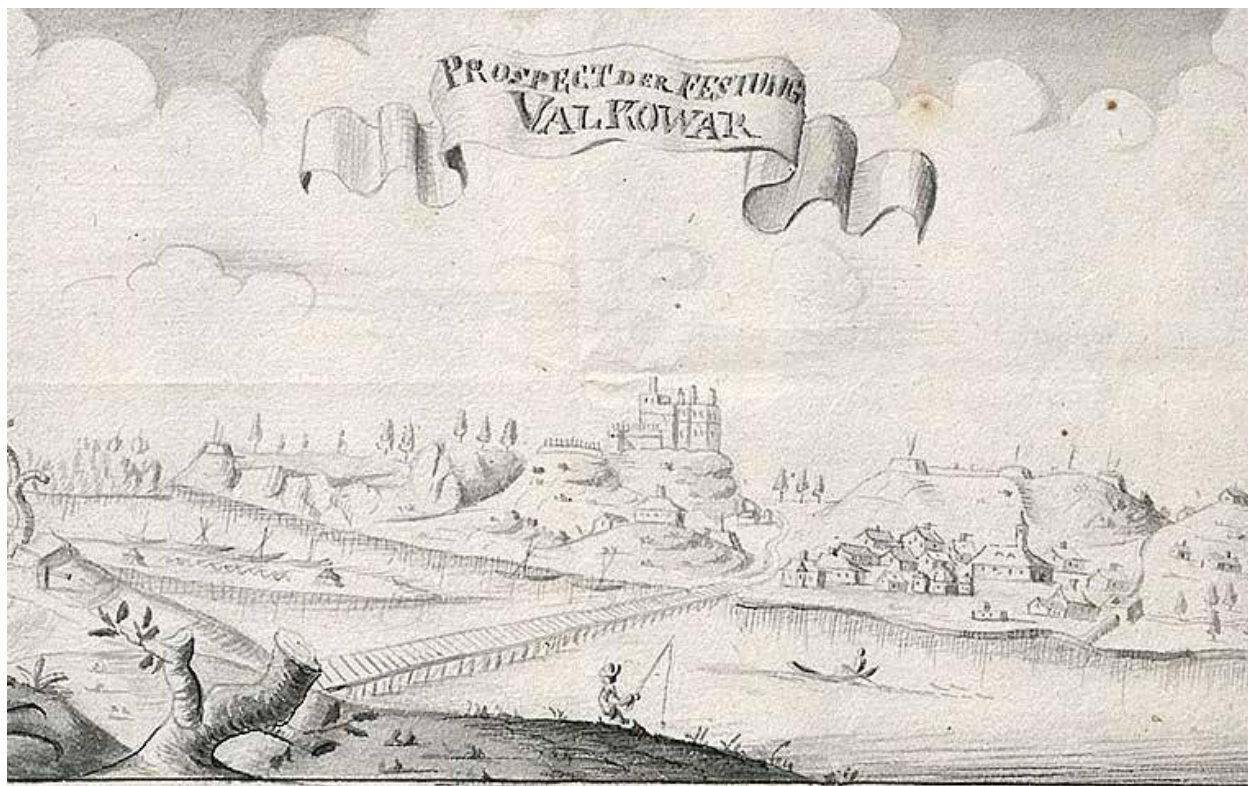 PROSPECT DER FESTUNG
VALKOWAR